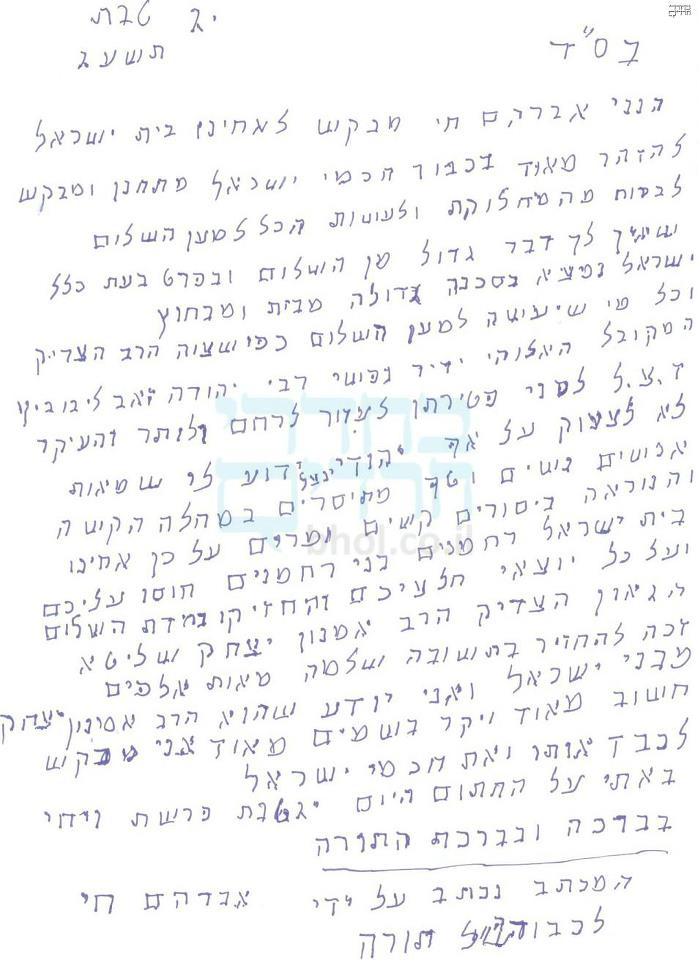 יג טבת
תשעב
בס"ד
הנני אברהם חי מבקש לאחינו בית ישראל
להזהר מאוד בכבוד חכמי ישראל מתחנן ומבקש
לברוח מהמחלוקת ולעשות הכל למען השלום
שאין לך דבר גדול מן השלום ובפרט בעת כלל
ישראל נמצא בסכנה גדולה מבית ומבחוץ
וכל מי שיעשה למען השלום כפי שצוה הרב הצדיק
המקובל האלוהי ידיד נפשי רבי יהודה זאב ליבוביץ
ז.צ.ל לפני פטירתו לעזור לרחם ולותר והעיקר
לא לצעוק על אף יהודי ידוע לי שמאות
אנשים נשים וטף מתיסרים במחלה הקשה
והנוראה ביסורים קשים ומרים על כן אחינו
בית ישראל רחמנים בני רחמנים חוסו עליכם
ועל כל יוצאי חלציכם והחזיקו במדת השלום
הגאון הצדיק הרב אמנון יצחק שליטא
זכה להחזיר בתשובה שלמה מאות אלפים
מבני ישראל ואני יודע שהוא הרב אמנון יצחק
חשוב מאוד ויקר בשמים מאוד אני מבקש
לכבד אותו ואת חכמי ישראל
באתי על החתום היום יג טבת פרשת ויחי
בברכה ובברכת התורה
המכתב נכתב על ידי אברהם חי
לכבודה של תורה
בחדרי
חרדים
bhol.co.il